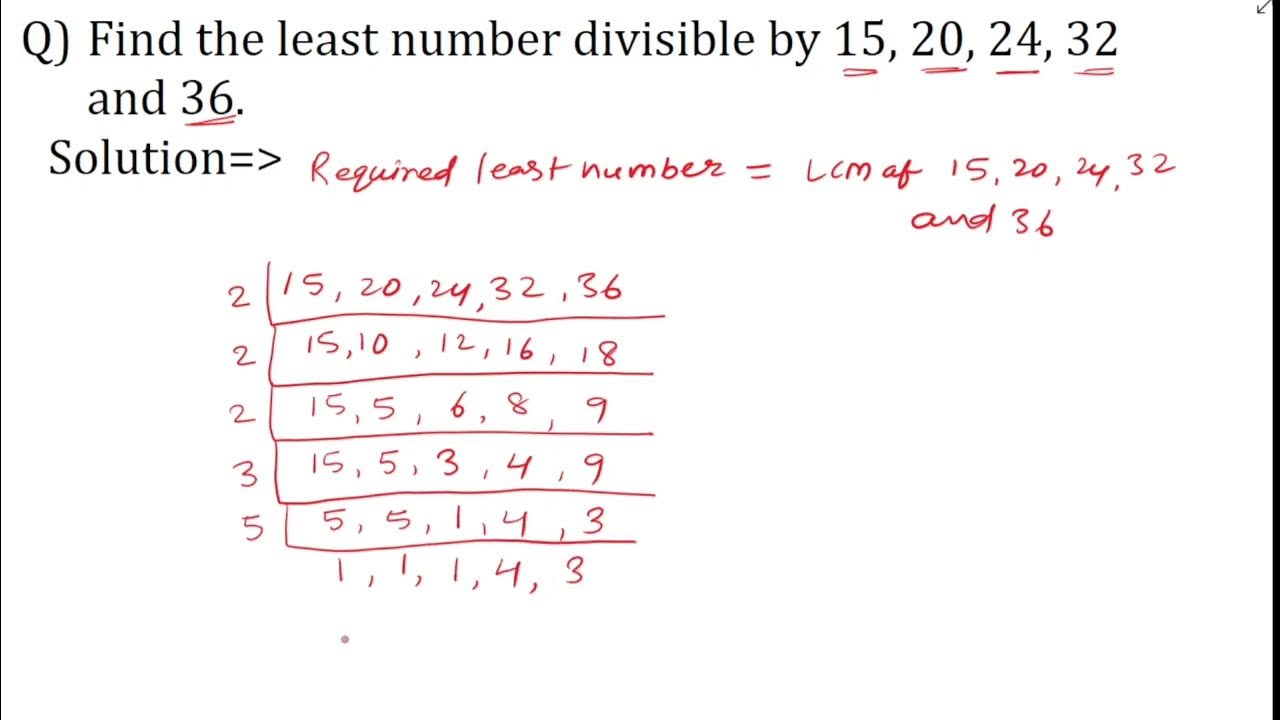 Q) Find the least number divisible by 15, 20, 24, 32
and 36.
Solution=> Required least number = LCM of 15, 20, 24, 32
and 36
2 | 15, 20, 24, 32, 36
2 | 15, 10, 12, 16, 18
2 | 15, 5, 6, 8, 9
3 | 15, 5, 3, 4, 9
5 | 5, 5, 1, 4, 3
1, 1, 1, 4, 3